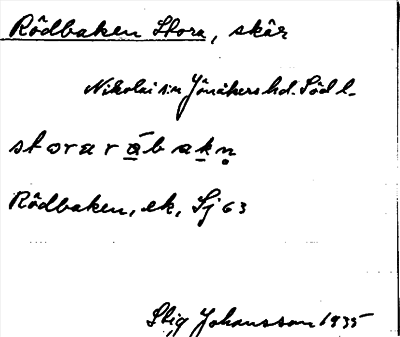 Rödbaken Stora, skär
Nikolai sn Jönåkers hd. Söd l.
storaråbakn
Rödbaken, ek, Sj 63
Stig Johansson 1935